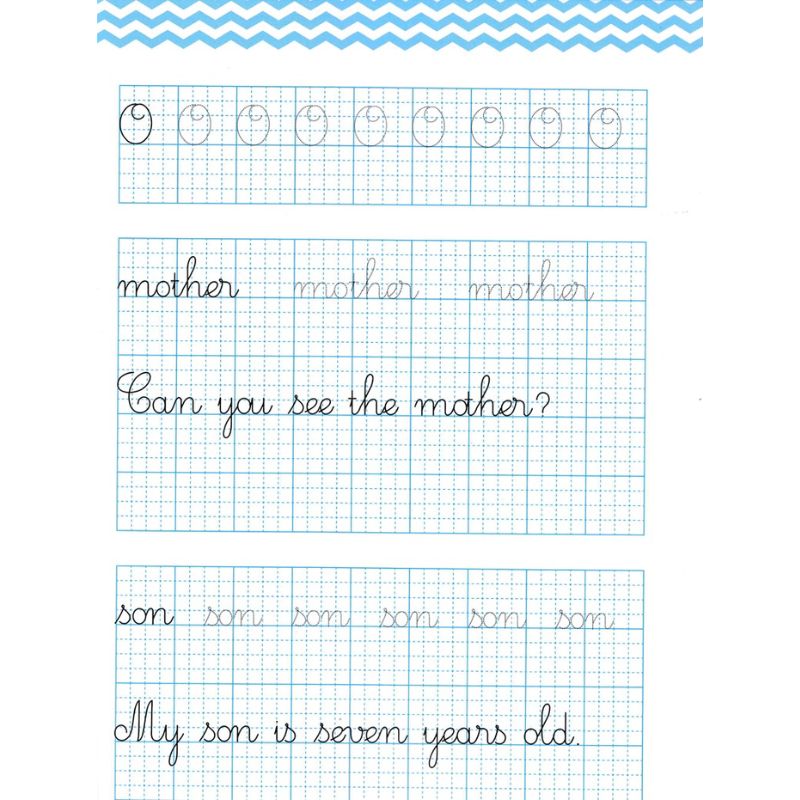 O O O O O O O O O
mother mother mother
Can you see the mother?
son son son son son son
My son is seven years old.